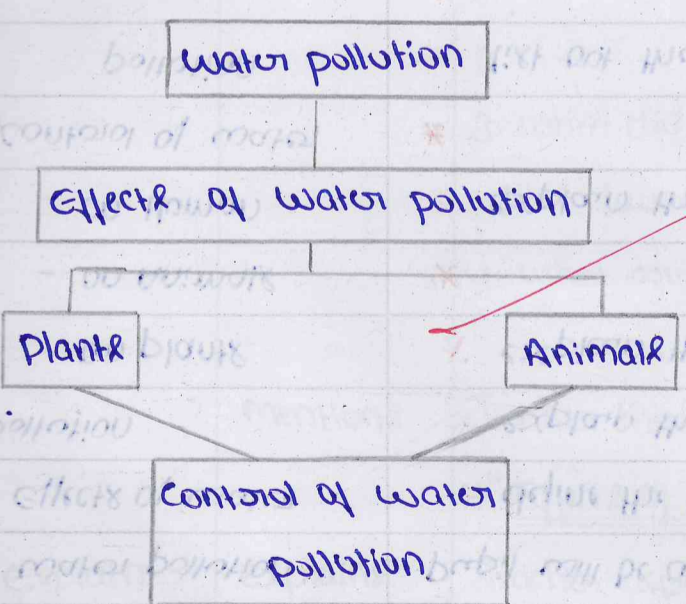 Water pollution
Effects of water pollution
Plants
Animals
Control of water
pollution